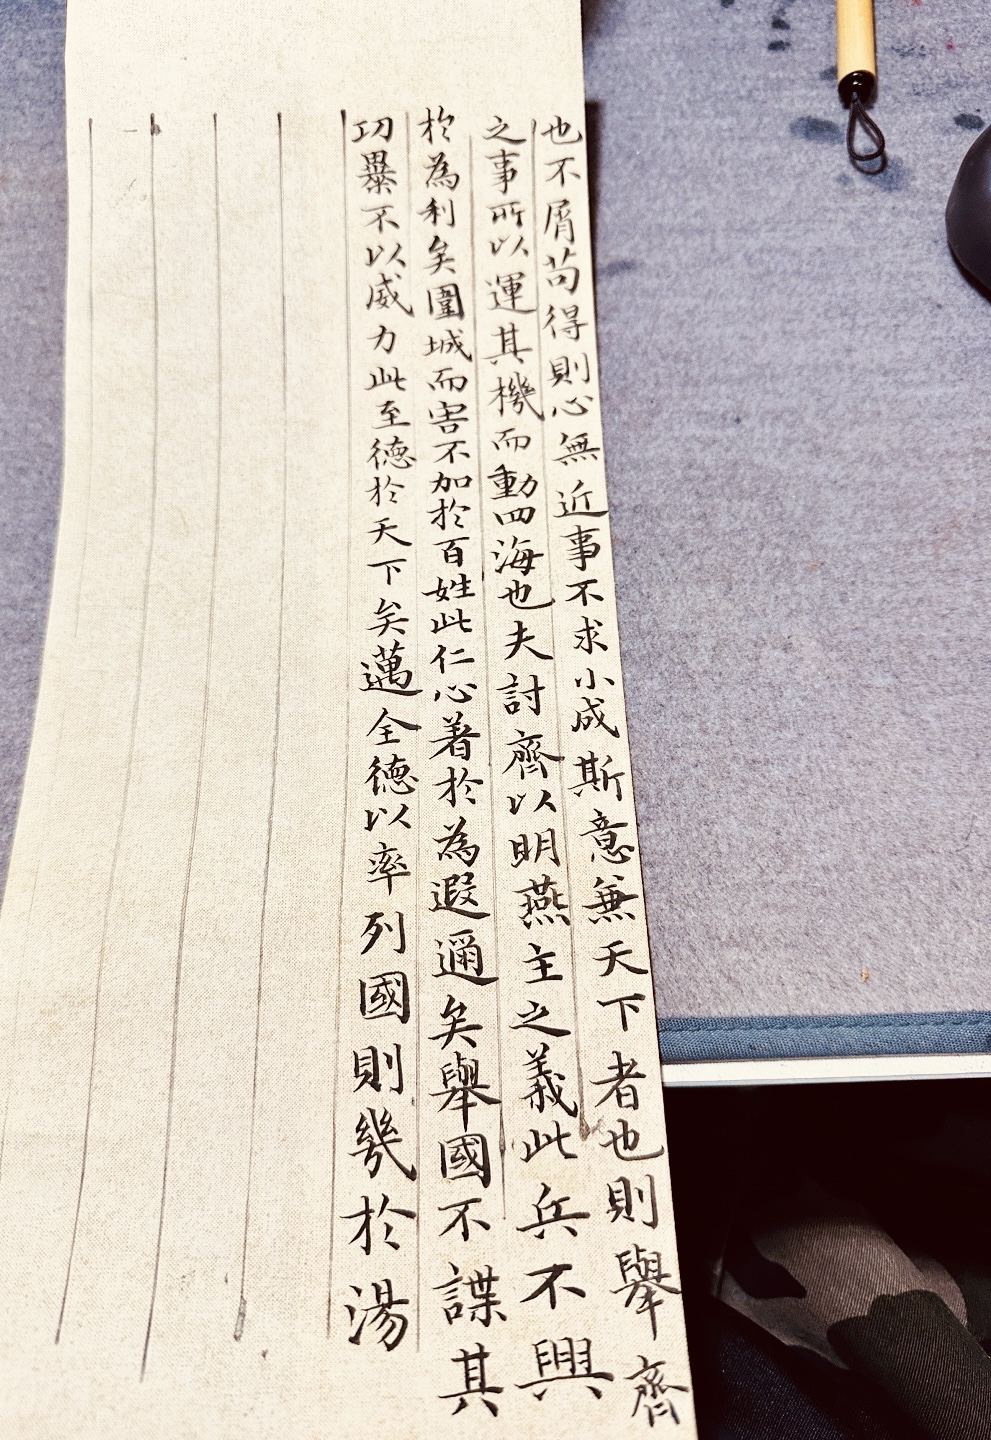 也不屑苟得則心無近事不求小成斯意兼天下者也則舉齊
之事所以運其機而動四海也夫討齊以明燕主之義此兵不興
於為利矣圍城而害不加於百姓此仁心著於為遐邇矣舉國不謀其
功暴不以威力此至德於天下矣邁全德以率列國則幾於湯